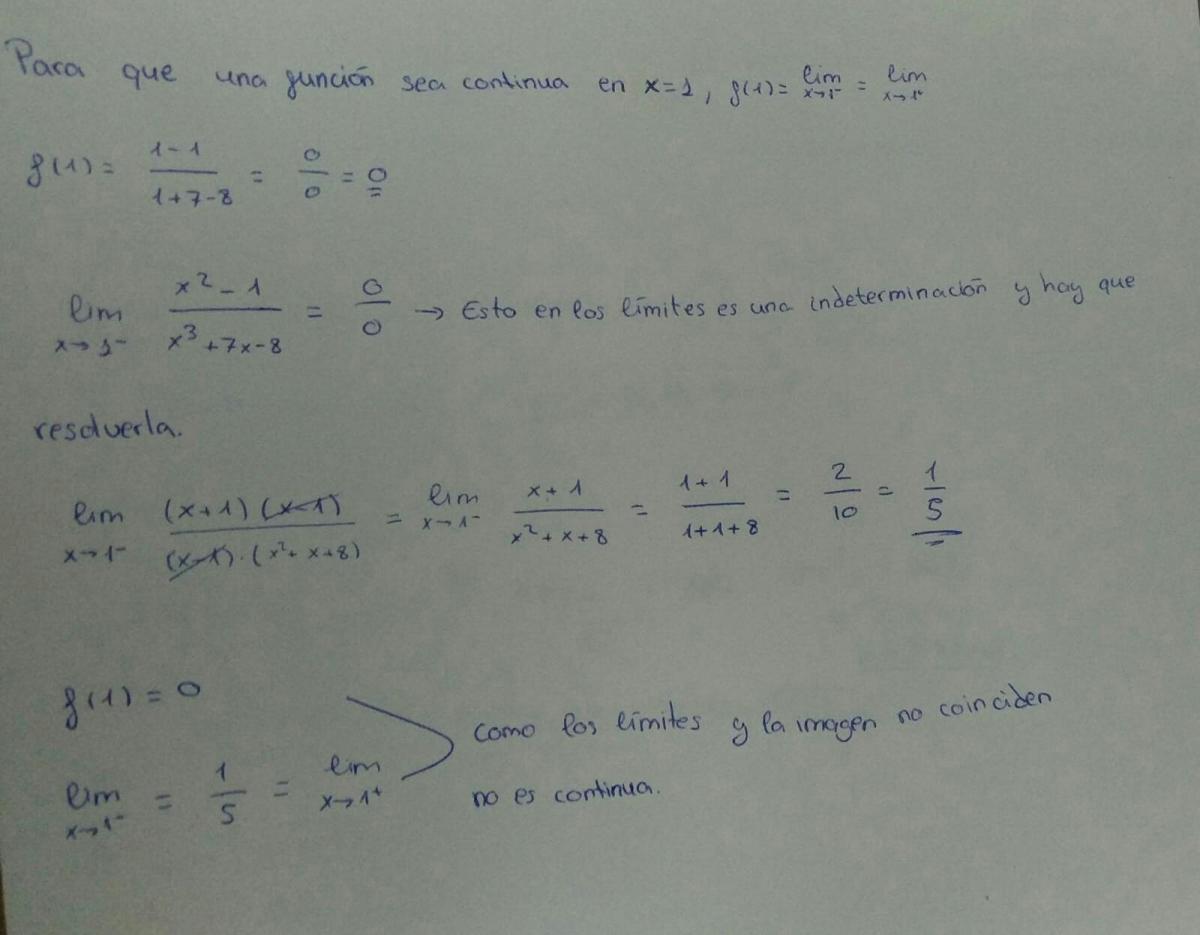 Para que una función sea continua en x=1, f(1)= lim x→1⁻ = lim x→1⁺
f(1) = (1-1)/(1+7-8) = 0/0 = 0
lim x→1⁻ (x²-1)/(x³+7x-8) = 0/0 → Esto en los límites es una indeterminación y hay que
resolverla.
lim x→1⁻ (x+1)(x-1)/(x-1)·(x²+x+8) = lim x→1⁻ (x+1)/(x²+x+8) = (1+1)/(1+1+8) = 2/10 = 1/5
f(1) = 0
como los límites y la imagen no coinciden
lim x→1⁻ = 1/5 = lim x→1⁺
no es continua.